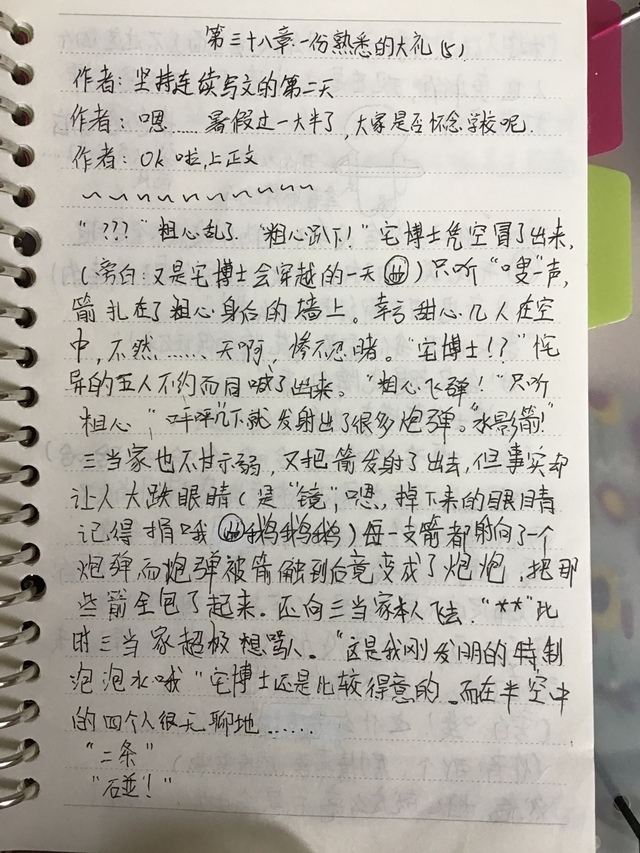 第三十八章一份熟悉的大礼(5)
作者:坚持连续写文的第二天
作者:嗯……暑假过一大半了,大家是否怀念学校呢.
作者:OK啦,上正文
~~~~~~~~~~~
"???"粗心乱了."粗心趴下!"宅博士凭空冒了出来,
(旁白:又是宅博士会穿越的一天)只听"嗖"一声,
箭扎在了粗心身后的墙上。幸亏甜心几人在空
中,不然……天啊,惨不忍睹。"宅博士!?"诧
异的五人不约而同喊了出来。"粗心飞弹!"只听
粗心"呯呯"几下就发射出了很多炮弹。"水影箭!"
三当家也不甘示弱,又把箭发射了出去,但事实却
让人大跌眼睛(是"镜",嗯,掉下来的眼睛
记得捐哦鹅鹅鹅)每一支箭都射向了一个
炮弹而炮弹被箭触到后竟变成了炮炮,把那
些箭全包了起来.还向三当家本人飞去."**"比
时三当家超极想骂人。"这是我刚发明的特制
泡泡水哦"宅博士还是比较得意的.而在半空中
的四个人很无聊地……
"二条"
"碰!"